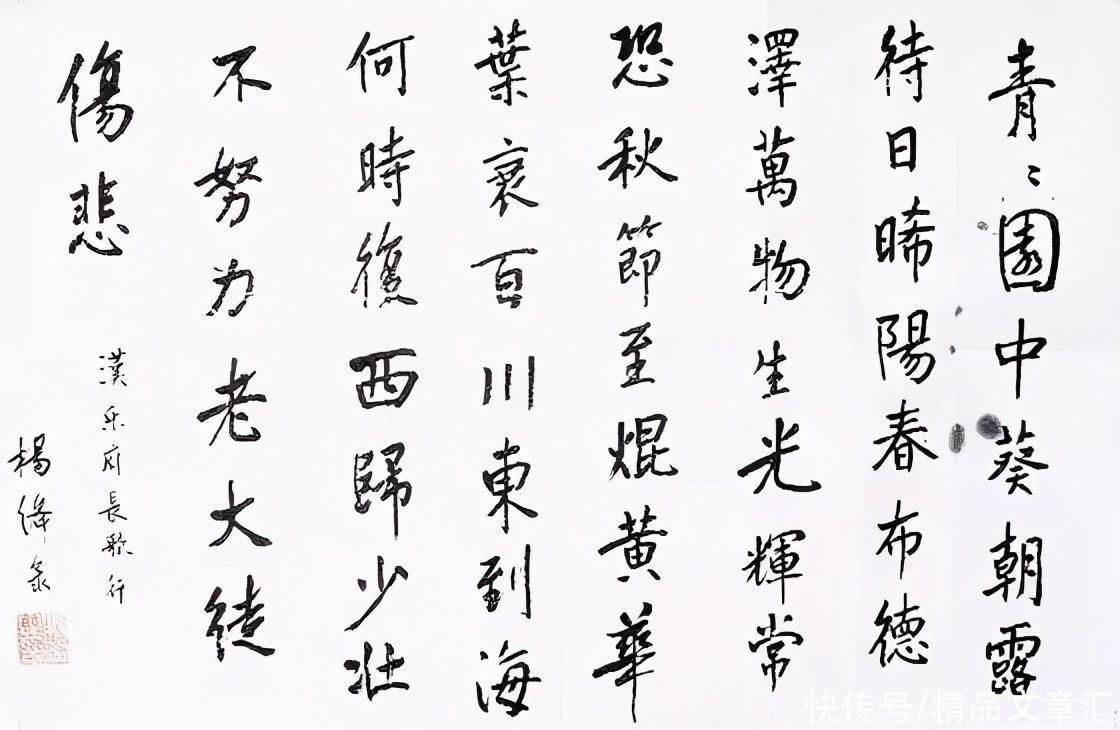 青〻園中葵朝露
待日晞陽春布德
澤萬物生光輝常
恐秋節至焜黄華
葉衰百川東到海
何時復西歸少壯
不努力老大徒
傷悲
漢乐府長歌行
楊絳錄
快传号/精品文章汇